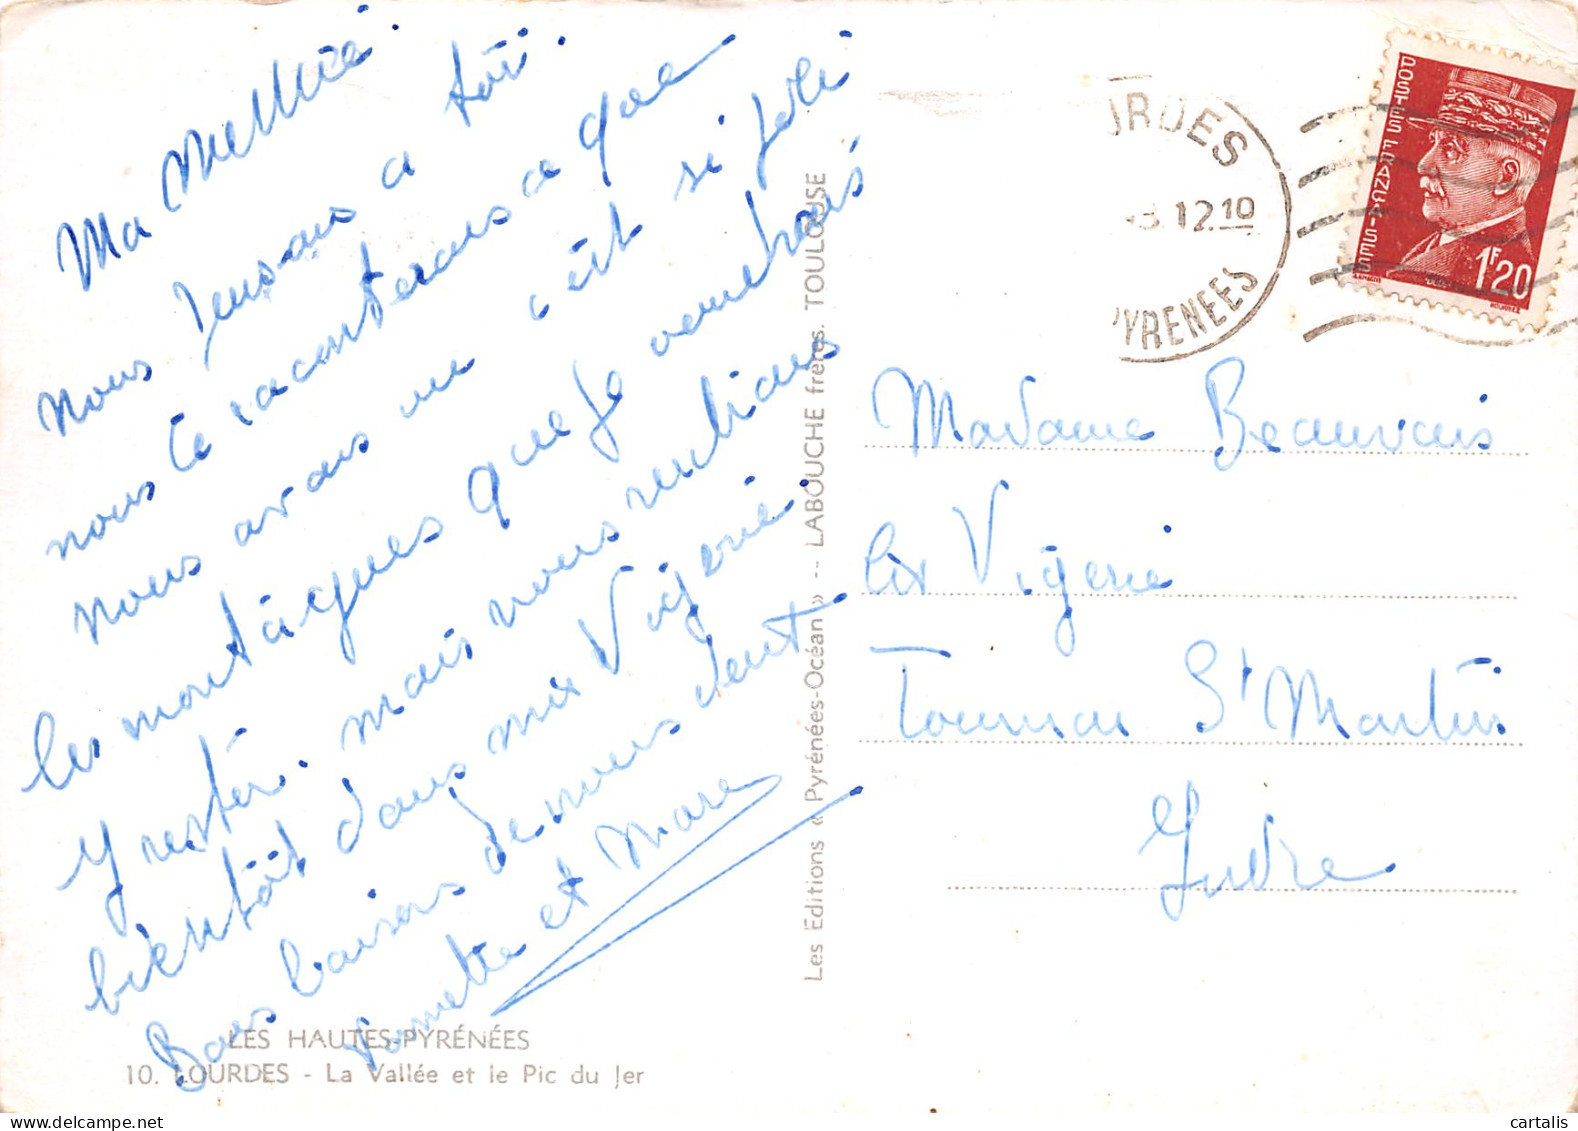 Ma Mellie.
nous pensons a toi.
nous te raconterons ce que
nous avons vu c'était si joli
les montagnes que je voudrais
y rester. mais nous rentrons
bientôt dans Vigerie.
Bons baisers de nous deux
et Marc
LES HAUTES-PYRÉNÉES
10. LOURDES - La Vallée et le Pic du Jer
Les Editions « Pyrénées-Océan » -- LABOUCHE frères. TOULOUSE
URDES
12 10
PYRENEES
POSTES FRANÇAISES
1F20
Madame Beauvais
Vigerie
Tournon St Martin
Indre
cartalis